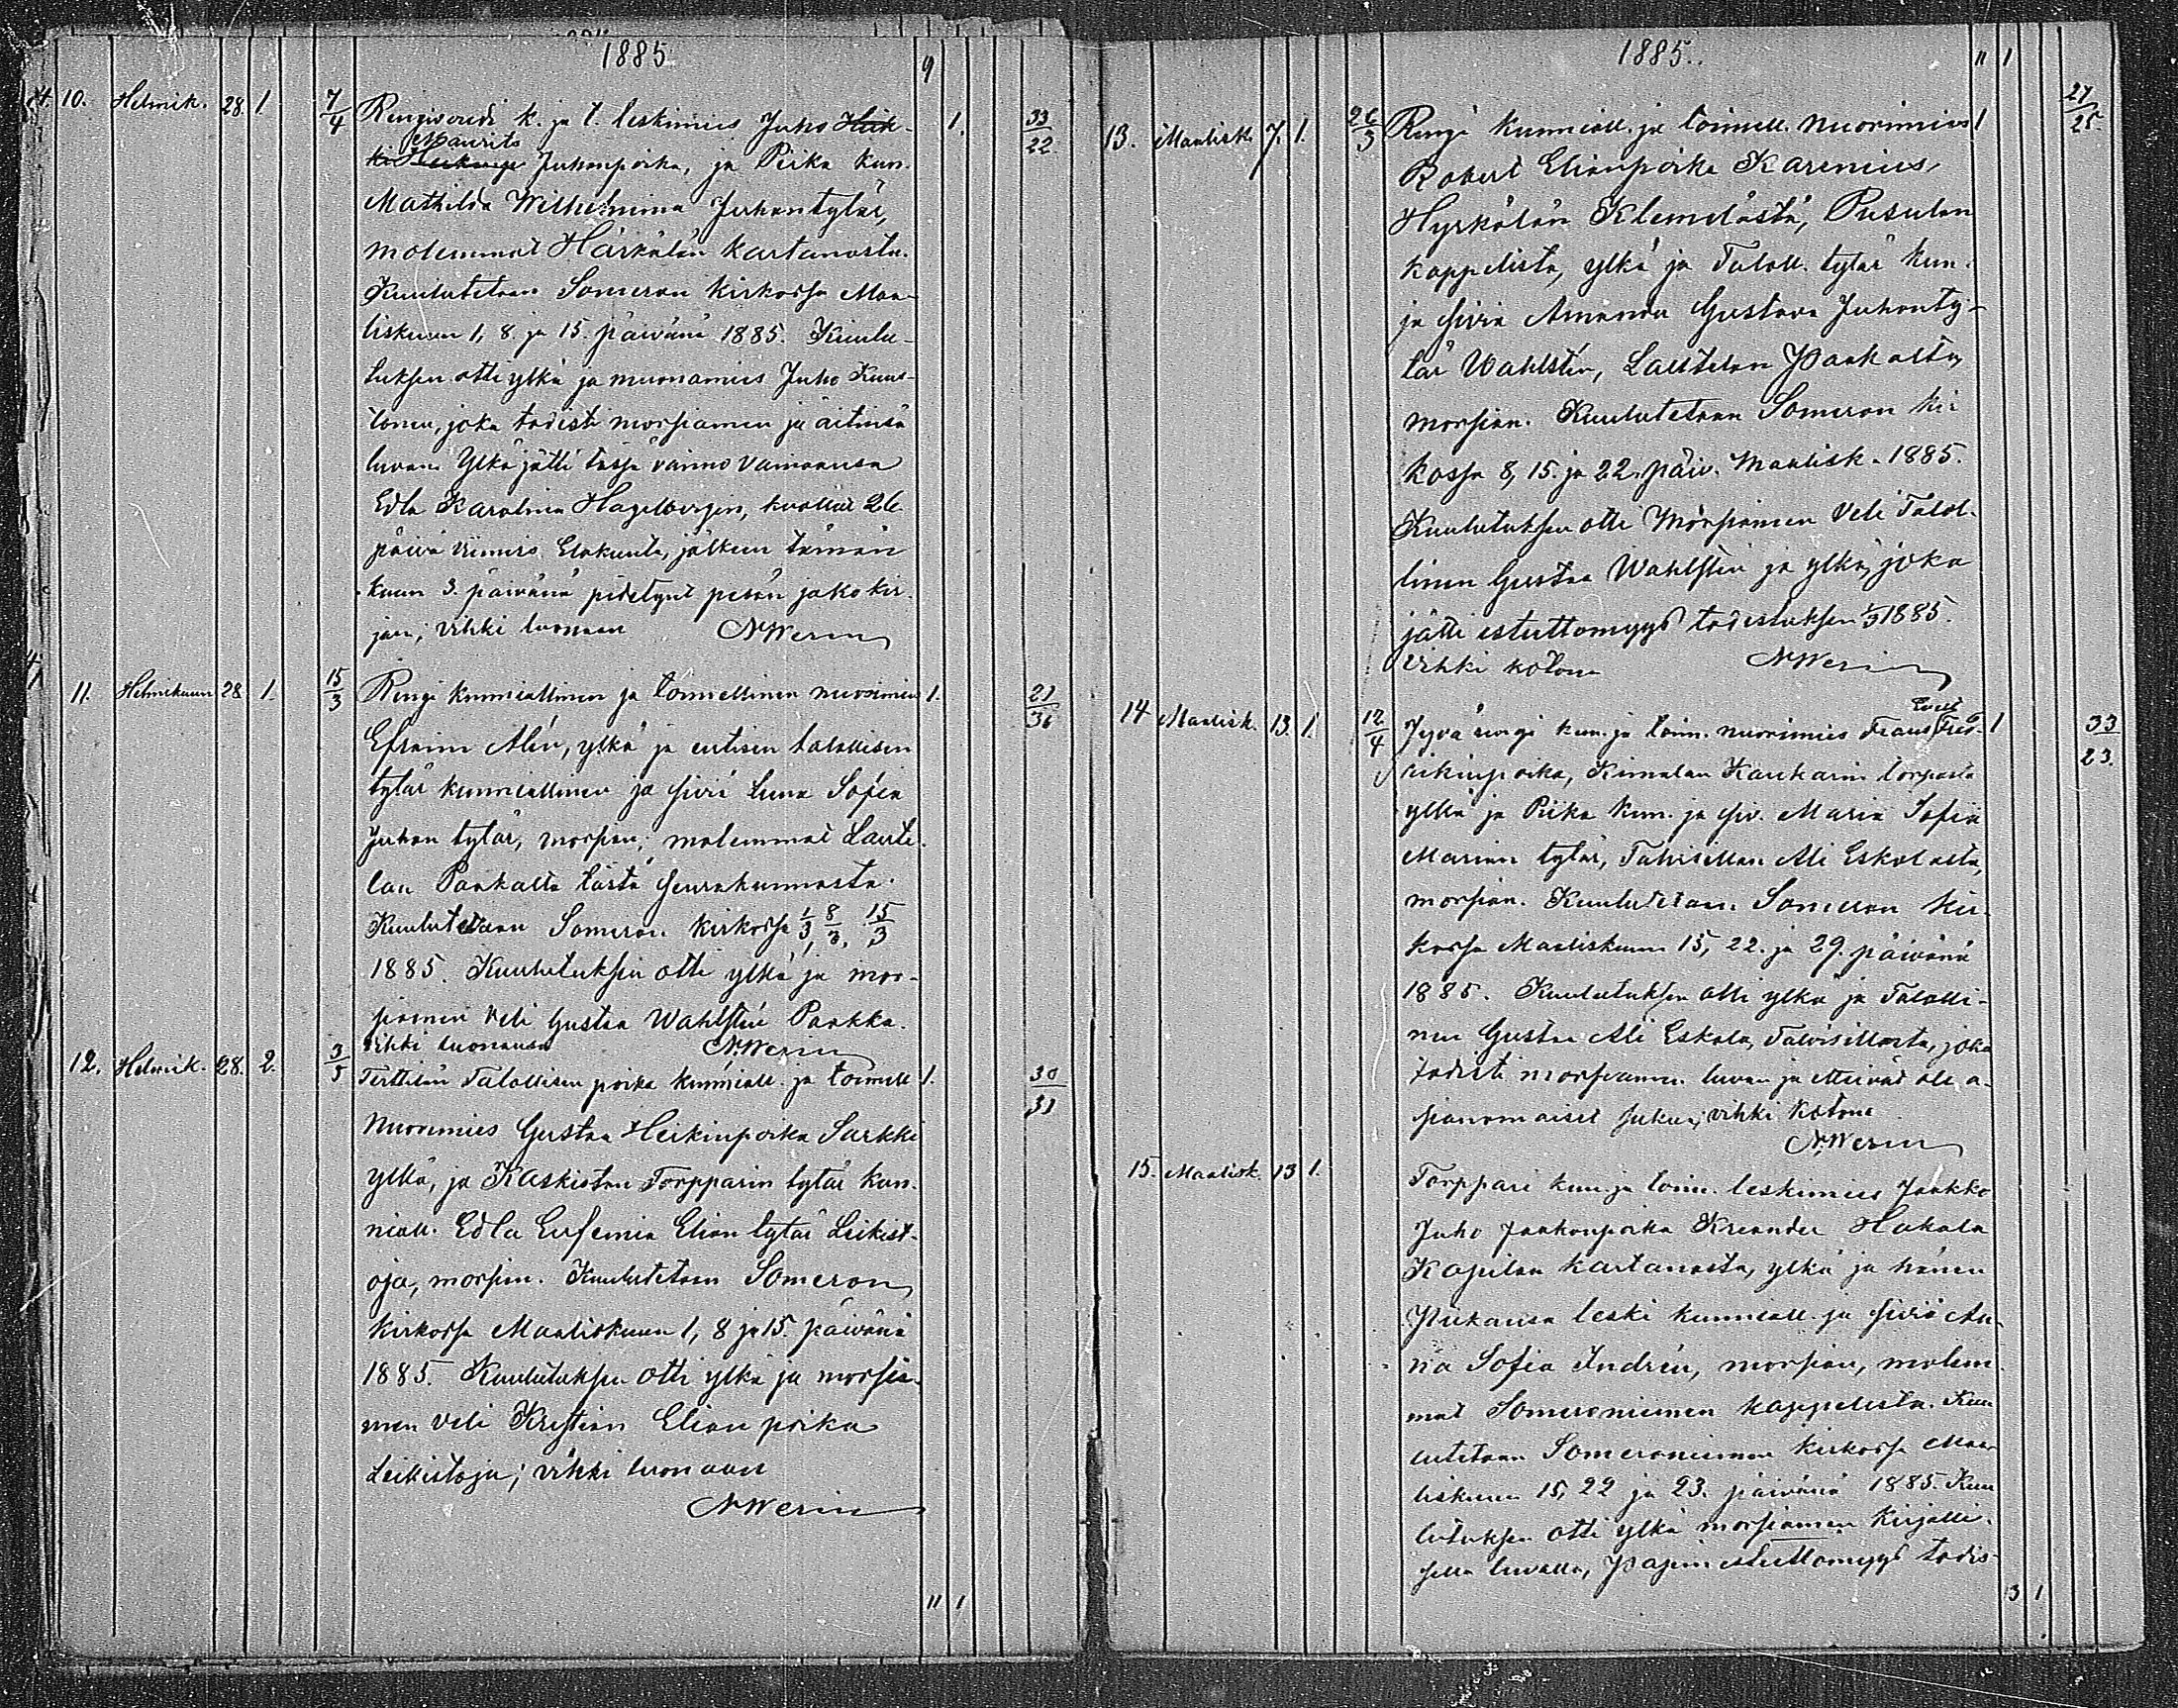 1885
9
10. Helmik. 28. 1. 7/4 Rengivouti k. ja t. leskimies Juho Heik- 1. 33/22
Maurits
ki Juhonpoika, ja Piika kun.
Mathilda Wilhelmina Juhontytär,
molemmat Härkälän kartanosta.
Kuulutetaan Someron kirkossa Maa-
liskuun 1, 8. ja 15. päivänä 1885. Kuulu-
tuksen otti ylkä ja muonamies Juho Kuus-
tonen, joka todisti morsiamen ja äitinsä
luvan. Ylkä jätti tässä vaimo vainaansa
Edla Karolina Hagelbergin, kuollut 26
päivä viimeis Elokuuta, jälkeen tämän
kuun 3. päivänä pidetyn pesän jakokir-
jan; vihki luonaan NWerin
11. Helmikuun 28 1. 15/3 Rengi kunniallinen ja toimellinen nuorimies 1. 21/36
Efraim Alén, ylkä ja entisen talollisen
tytär kunniallinen ja siviä Lena Sofia
Juhon tytär, morsian; molemmat Laute-
lan Paakalta tästä seurakunnasta.
Kuulutetaan Someron kirkossa 1/3, 8/3, 15/3
1885. Kuulutuksen otti ylkä ja mor-
siamen veli Gustaa Wahlstén Paakka.
vihki luonansa N.Werin
12. Helmik. 28. 2. 3/5 Terttilän Talollisen poika kunniall. ja toimell 1. 30/31
Nuorimies Gustaa Heikinpoika Sarkki
ylkä, ja Kaskiston Torpparin tytär kun-
niall. Edla Eufemia Elian tytär Leikist-
oja, morsian. Kuulutetaan Someron
kirkossa Maaliskuun 1, 8 ja 15. päivänä
1885. Kuulutuksen otti ylkä ja morsia-
men veli Kristian Elian poika
Leikistoja; vihki luonaan
NWerin
11 1
1885.
11 1
13. Maalisk. 7. 1. 26/3 Rengi kunniall. ja toimell. nuorimies 1 27/25
Robert Elianpoika Karenius,
Hyrkölän Klemelästä, Pusulan
kappelista, ylkä ja Taloll. tytär kun.
ja siviä Amanda Gustava Juhonty-
tär Wahlstén, Lautelan Paakalta,
morsian. Kuulutetaan Someron kir
kossa 8, 15. ja 22. päiv. Maalisk. 1885.
Kuulutuksen otti Morsiamen veli Talol-
linen Gustaa Wahlstén ja ylkä, joka
jätti esteettomyys todistuksen 1885.
Vihki kotona NWerin
14 Maalisk. 13. 1. 12/4 Jyvä rengi kun. ja toim. nuorimies Frans Fred- 1 33/23.
rikinpoika, Kimalan Kaukarin torpasta
ylkä ja Piika kun. ja siv. Maria Sofia
Marian tytär, Talvisillan Ali Eskolasta,
morsian. Kuulutetaan Someron kir-
kossa Maaliskuun 15, 22. ja 29. päivänä
1885. Kuulutuksen otti ylkä ja Talolli-
nen Gustaa Ali Eskola, Talvisillasta, joka
todisti morsiamen luvan ja etteivät ole a-
sianomaiset sukua; vihki kotona
N.Werin
15. Maalisk. 13 1. Torppari kun. ja toim. leskimies Jaakko
Juho Jaakonpoika Kreander Hakala
Kopilan kartanosta, ylkä ja hänen
Piikansa leski kunniall. ja siviä An-
na Sofia Andrén, morsian, molem-
mat Someroniemen kappelista. Kuu
lutetaan Someroniemen kirkossa Maa-
liskuun 15, 22 ja 23. päivänä 1885. Kuu
lutuksen otti ylkä morsiamen kirjalli-
sella luvalla, Papin esteettomyys todis-
13 1